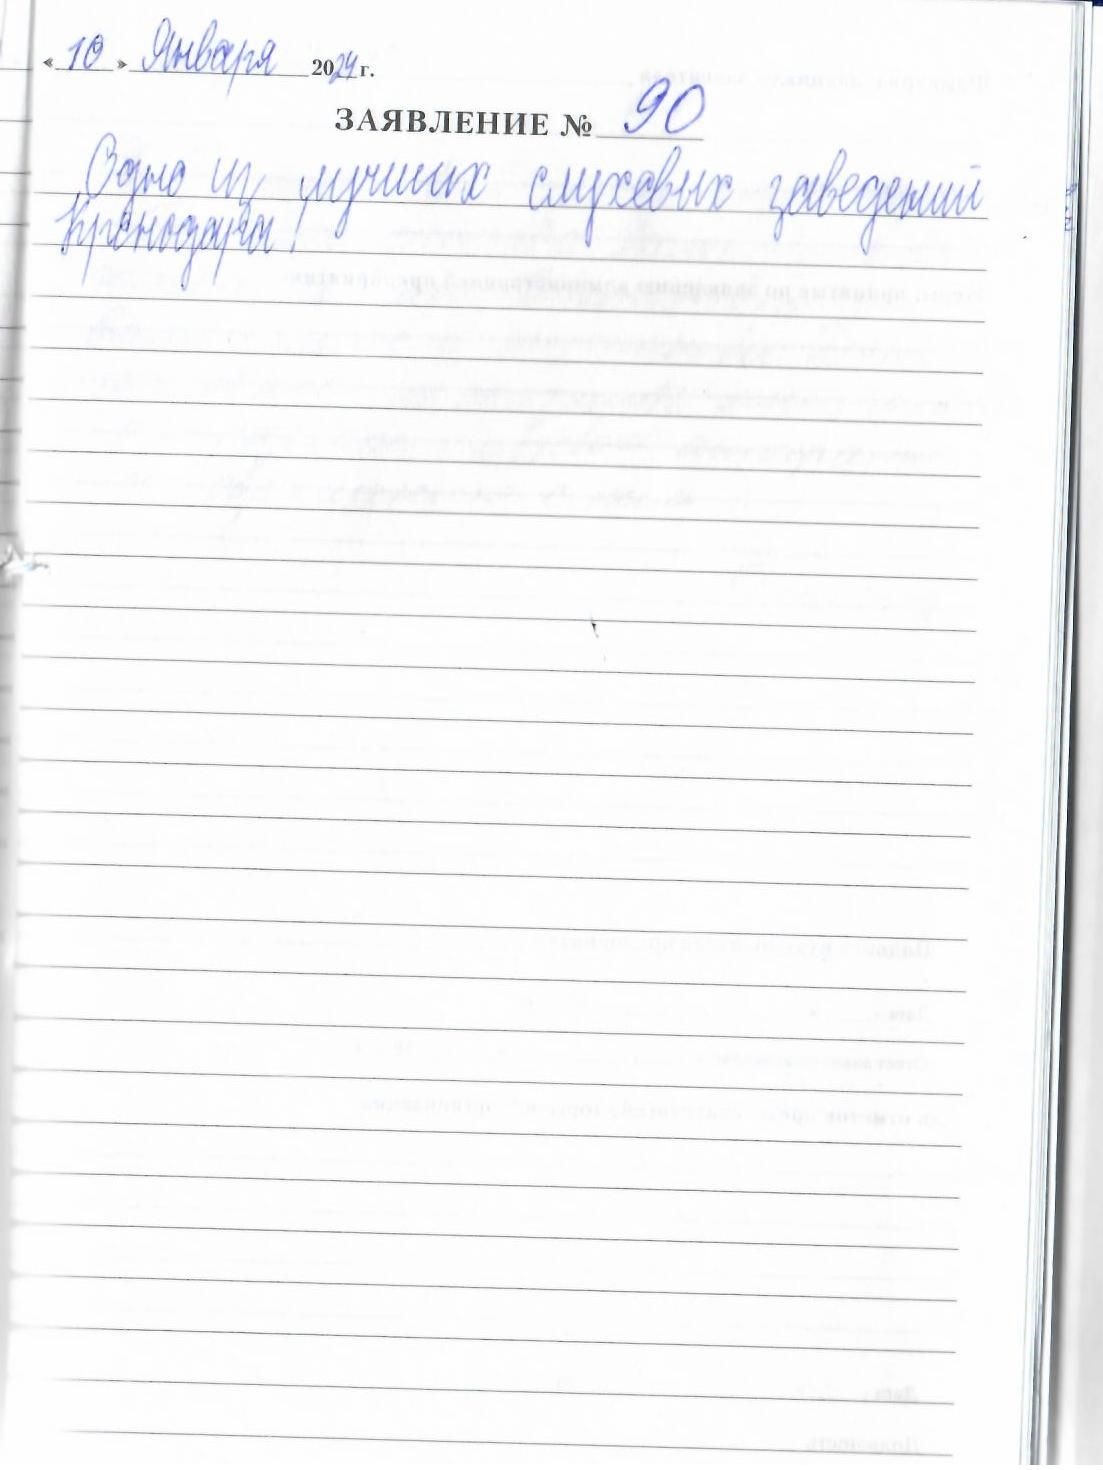 « 10 » Января 2024 г.
ЗАЯВЛЕНИЕ № 90
Одно из лучших слуховых заведений
Краснодара!